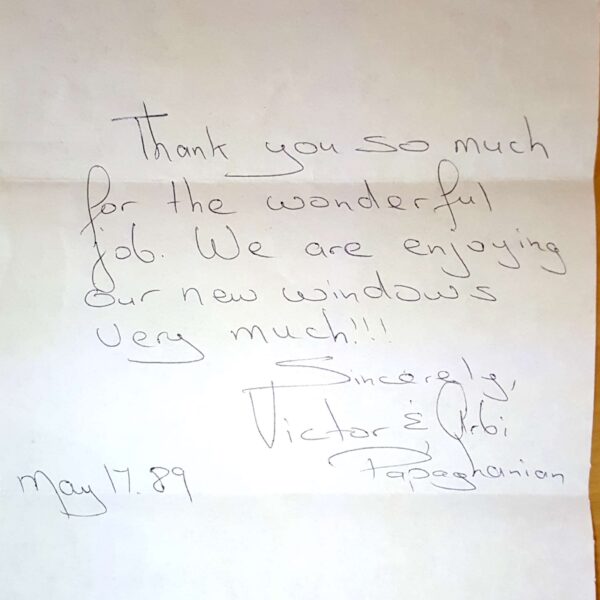 Thank you so much
for the wonderful
job. We are enjoying
our new windows
very much!!!
Sincerely,
Victor & Arbi
Papaghanian
May 17. 89